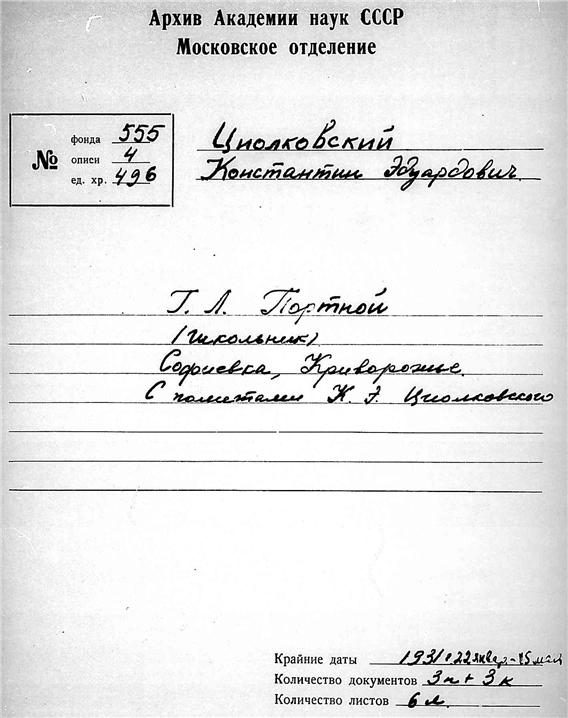 Архив Академии наук СССР
Московское отделение
№
фонда 555
описи 4
ед. хр. 496
Циолковский
Константин Эдуардович.
Г. Л. Портной
(школьник)
Софиевка, Криворожье.
С пометами К. Э. Циолковского
Крайние даты 1931 г. 22 январ-15 мая
Количество документов 3п + 3к
Количество листов 6 л.